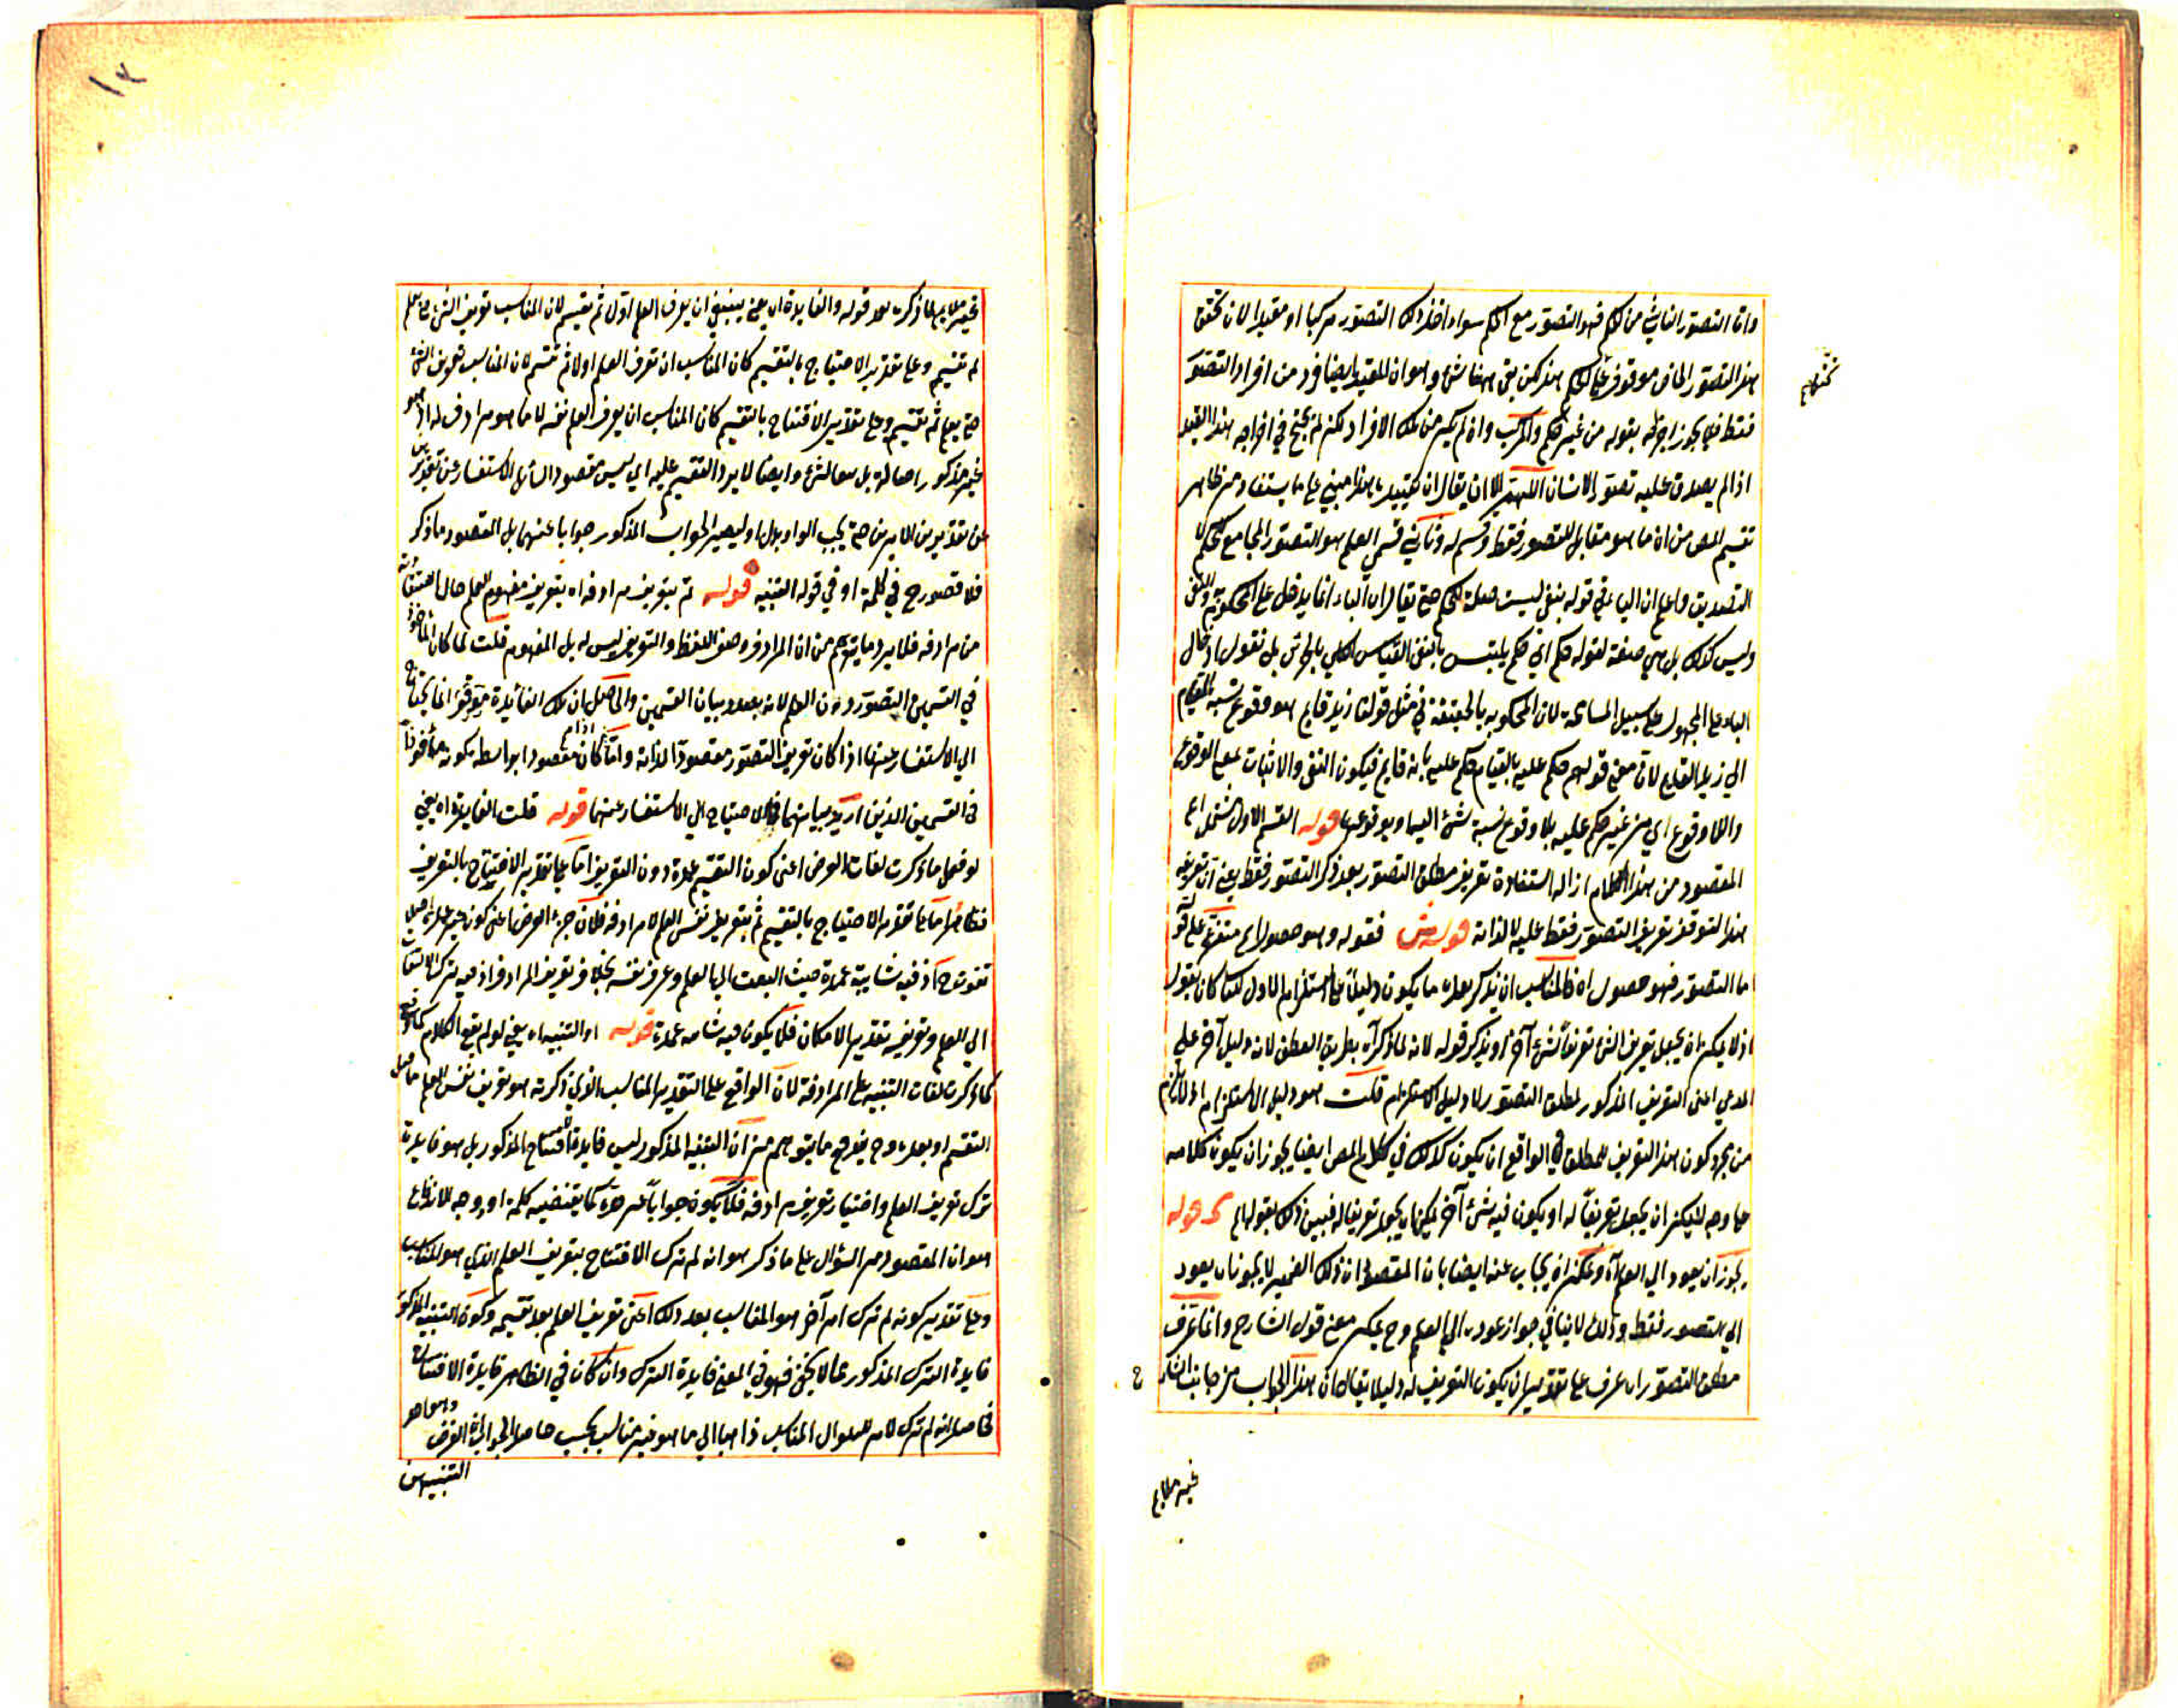 واما التصور الناشي من الحكم فهو التصور مع الحكم سواء اخذ ذلك التصور مركبا او مقيدا لان تحقق
هذا التصور الخاص موقوف على الحكم هذا لكن بقي ههنا شئ وهو ان المقيد ايضا فرد من افراد التصور
فقط فلا يجوز اخراجه بقوله من غير حكم والمركب وان لم يكن من تلك الافراد لكنه لم يحتج في اخراجه هذا القيد
اذا لم يصدق عليه تصور الانسان اللهم الا ان يقال ان تقييده بهذا مبني على ما يستفاد من ظاهر
تقسيم المص من ان ما هو مقابل للتصور فقط وقسيم له وثاني قسمي العلم هو التصور المجامع للحكم لا
التصديق واعلم ان الباء في قوله بنفي ليست صلة للحكم حتى يقال ان الباء انما يدخل على المحكوم به والنفي
وليس كذلك بل هي صفة لقوله حكم اي حكم يلتبس بالنفي القياس الكلي بالجزئي بل نقول ادخال
الباء على المجهول على سبيل المسامحة لان المحكوم به بالحقيقة في مثل قولنا زيد قايم هو وقوع نسبة القيام
الي زيد لا القايم لان معنى قولهم حكم عليه بالقيام حكم عليه بانه قايم فيكون النفي والاثبات بمعنى الوقوع
واللاوقوع اي من غير حكم عليه بلا وقوع نسبة شئ اليها وبوقوعها قوله القسم الاول يشتمل اه
المقصود من هذا الكلام ازالة استفادة تعريف مطلق التصور بعد ذكر التصور فقط يعني ان تعريف
هذا لتوقف تعريف التصور فقط عليه لا لذاته قوله ش فقوله وهو حصول اه متفرع على قوله
اما التصور فهو حصول اه فالمناسب ان يذكر بعده ما يكون دليلا على استلزام الاول كما كان بقول
اذ لا يمكن ان يجعل تعريف الشئ تعريفا لشئ آخر او يذكر قوله لانه لما ذكر آه بطريق العطف لانه دليل آخر على
المدعي اعني التعريف المذكور لمطلق التصور لا دليل الاستلزام قلت هو دليل الاستلزام اذ لا يلزم
من مجرد كون هذا التعريف للمطلق في الواقع ان يكون كذلك في كلام المص ايضا يجوز ان يكون كلامه
على وجه لا يمكن ان يجعل تعريفا له او يكون فيه شئ آخر يمكن ان يجعل تعريفا له فبين ذلك بقوله اه قوله
يجوز ان يعود الي العلم آه ويمكن ان يجاب عنه ايضا بان المقصود ان ذلك الضمير لا يجوز ان يعود
الي التصور فقط وذلك لا ينافي جواز عوده الي العلم وح يمكن معنى قول الشارح وانما عرف
مطلق التصور اه عرف على تقدير ان يكون التعريف له دليلا يقال كان هذا الجواب من جانب الشارح
غير ملايم
غير ملايم لما ذكره بعد قوله والفايدة اه يعني ينبغي ان يعرف العلم اولا ثم يقسم لان المناسب تعريف الشئ حتى يعلم
ثم تقسيم وعلى تقدير الاحتياج بالتقسيم كان المناسب ان تعرف العلم اولا ثم تقسم لان المناسب تعريف الشئ
حتى يعلم ثم تقسيم وعلى تقدير الافتتاح بالتقسيم كان المناسب ان يعرف العلم نفسه لا ما هو مرادف له اذ هو
غير مذكور اصالة بل هو الشئ وايضا لا يرد التقسيم عليه اي ليس مقصود السائل الاستفسار عن تجويز
عن تقديرين الامرين حتى يجب الواو بدل او ليصير الجواب المذكور جوابا عنهما بل المقصود ما ذكر
فلا قصور ح في كلمة او في قوله التنبيه قوله ثم بتعريف مرادفه اه بتعريف مفهوم العلم حال استفادته
من مرادفه فلا يرد ما يتوهم من ان المرادف وصف اللفظ والتعريف ليس له بل المفهوم قلت لما كان الماخوذ
في القسمين التصور دون العلم لانه بصدد بيان القسمين والحاصل ان تلك الفائدة انما يحتاج
الي الاستفسار عنها اذا كان تعريف التصور مقصودا لذاته واما اذا كان مقصودا بواسطة كونه ماخوذا
في القسمين الذين اريد بيانهما فلا احتياج الي الاستفسار عنها قوله قلت الفايدة اه يعني
لو فعل ما ذكرت لفات الغرض اعني كون التقسيم عمدة دون التعريف اما على تقدير الافتتاح بالتعريف
فظاهر واما على تقدير الاحتياج بالتقسيم ثم بتعريف نفس العلم لا مرادفه فلان جزء الغرض اعني كون
تفوت ح اذ فيه شايبة عمدة حيث التفت الي العلم وعرف نفسه بخلاف تعريف المرادف اذ فيه ترك الالتفات
الي العلم وتعريفه بقدر الامكان فلا يكون فيه شايبة عمدة قوله او التنبيه اه يعني لو لم يقع الكلام كما وقع
كما ذكرت لفات التنبيه على المرادفة لان الواقع على التقدير المناسب الذي ذكرته هو تعريف نفس العلم قبل
التقسيم او بعده وح يندفع ما يتوهم من ان التنبيه المذكور ليس فايدة الافتتاح المذكور بل هو فايدة
ترك تعريف العلم واختيار تعريف مرادفه فلا يكون جوابا كما يقتضيه كلمة او ووجه الاندفاع
هو ان المقصود من السؤال على ما ذكر هو انه لم ترك الافتتاح بتعريف العلم الذي هو المناسب
وعلى تقدير كونه لم ترك امر آخر هو المناسب بعد ذلك اعني تعريف العلم بعد تقسيمه وكون التنبيه المذكور
فايدة الترك المذكور مما لا يخفى فهو في المعنى فايدة الترك وان كان في الظاهر فايدة الافتتاح
فحاصله انه لم ترك المناسب ذاهبا الي ما هو غير مناسب بحسب حاصل الجواب الغرض
التنبيه